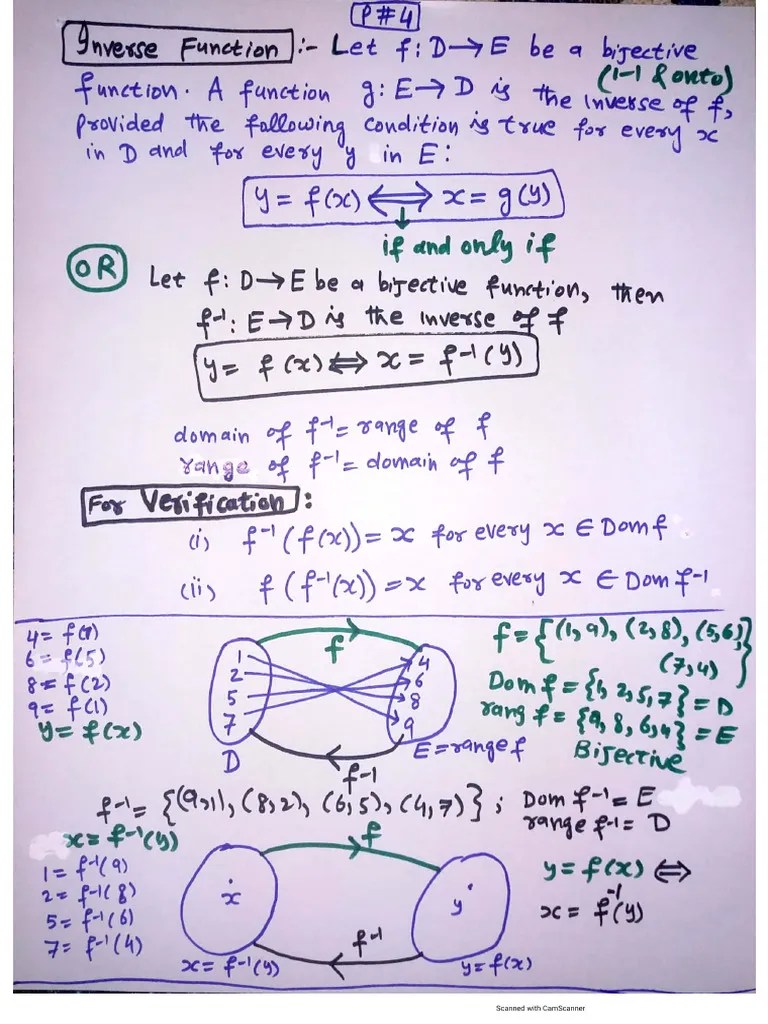 P#4
Inverse Function :- Let f: D→E be a bijective
(1-1 & onto)
function. A function g: E→D is the inverse of f,
provided the following condition is true for every x
in D and for every y in E:
y = f(x) ⟺ x = g(y)
if and only if
OR
Let f: D→E be a bijective function, then
f⁻¹: E→D is the inverse of f
y = f(x) ⟺ x = f⁻¹(y)
domain of f⁻¹ = range of f
range of f⁻¹ = domain of f
For Verification :
(i) f⁻¹(f(x)) = x for every x ∈ Dom f
(ii) f(f⁻¹(x)) = x for every x ∈ Dom f⁻¹
4 = f(7)
6 = f(5)
8 = f(2)
9 = f(1)
y = f(x)
f
1
2
5
7
D
4
6
8
9
E = range f
f⁻¹
f = {(1,9), (2,8), (5,6),
(7,4)}
Dom f = {1, 2, 5, 7} = D
rang f = {9, 8, 6, 4} = E
Bijective
f⁻¹ = {(9,1), (8,2), (6,5), (4,7)} ; Dom f⁻¹ = E
range f⁻¹ = D
x = f⁻¹(y)
1 = f⁻¹(9)
2 = f⁻¹(8)
5 = f⁻¹(6)
7 = f⁻¹(4)
f
x
y
f⁻¹
x = f⁻¹(y)
y = f(x)
y = f(x) ⟺
x = f⁻¹(y)
Scanned with CamScanner